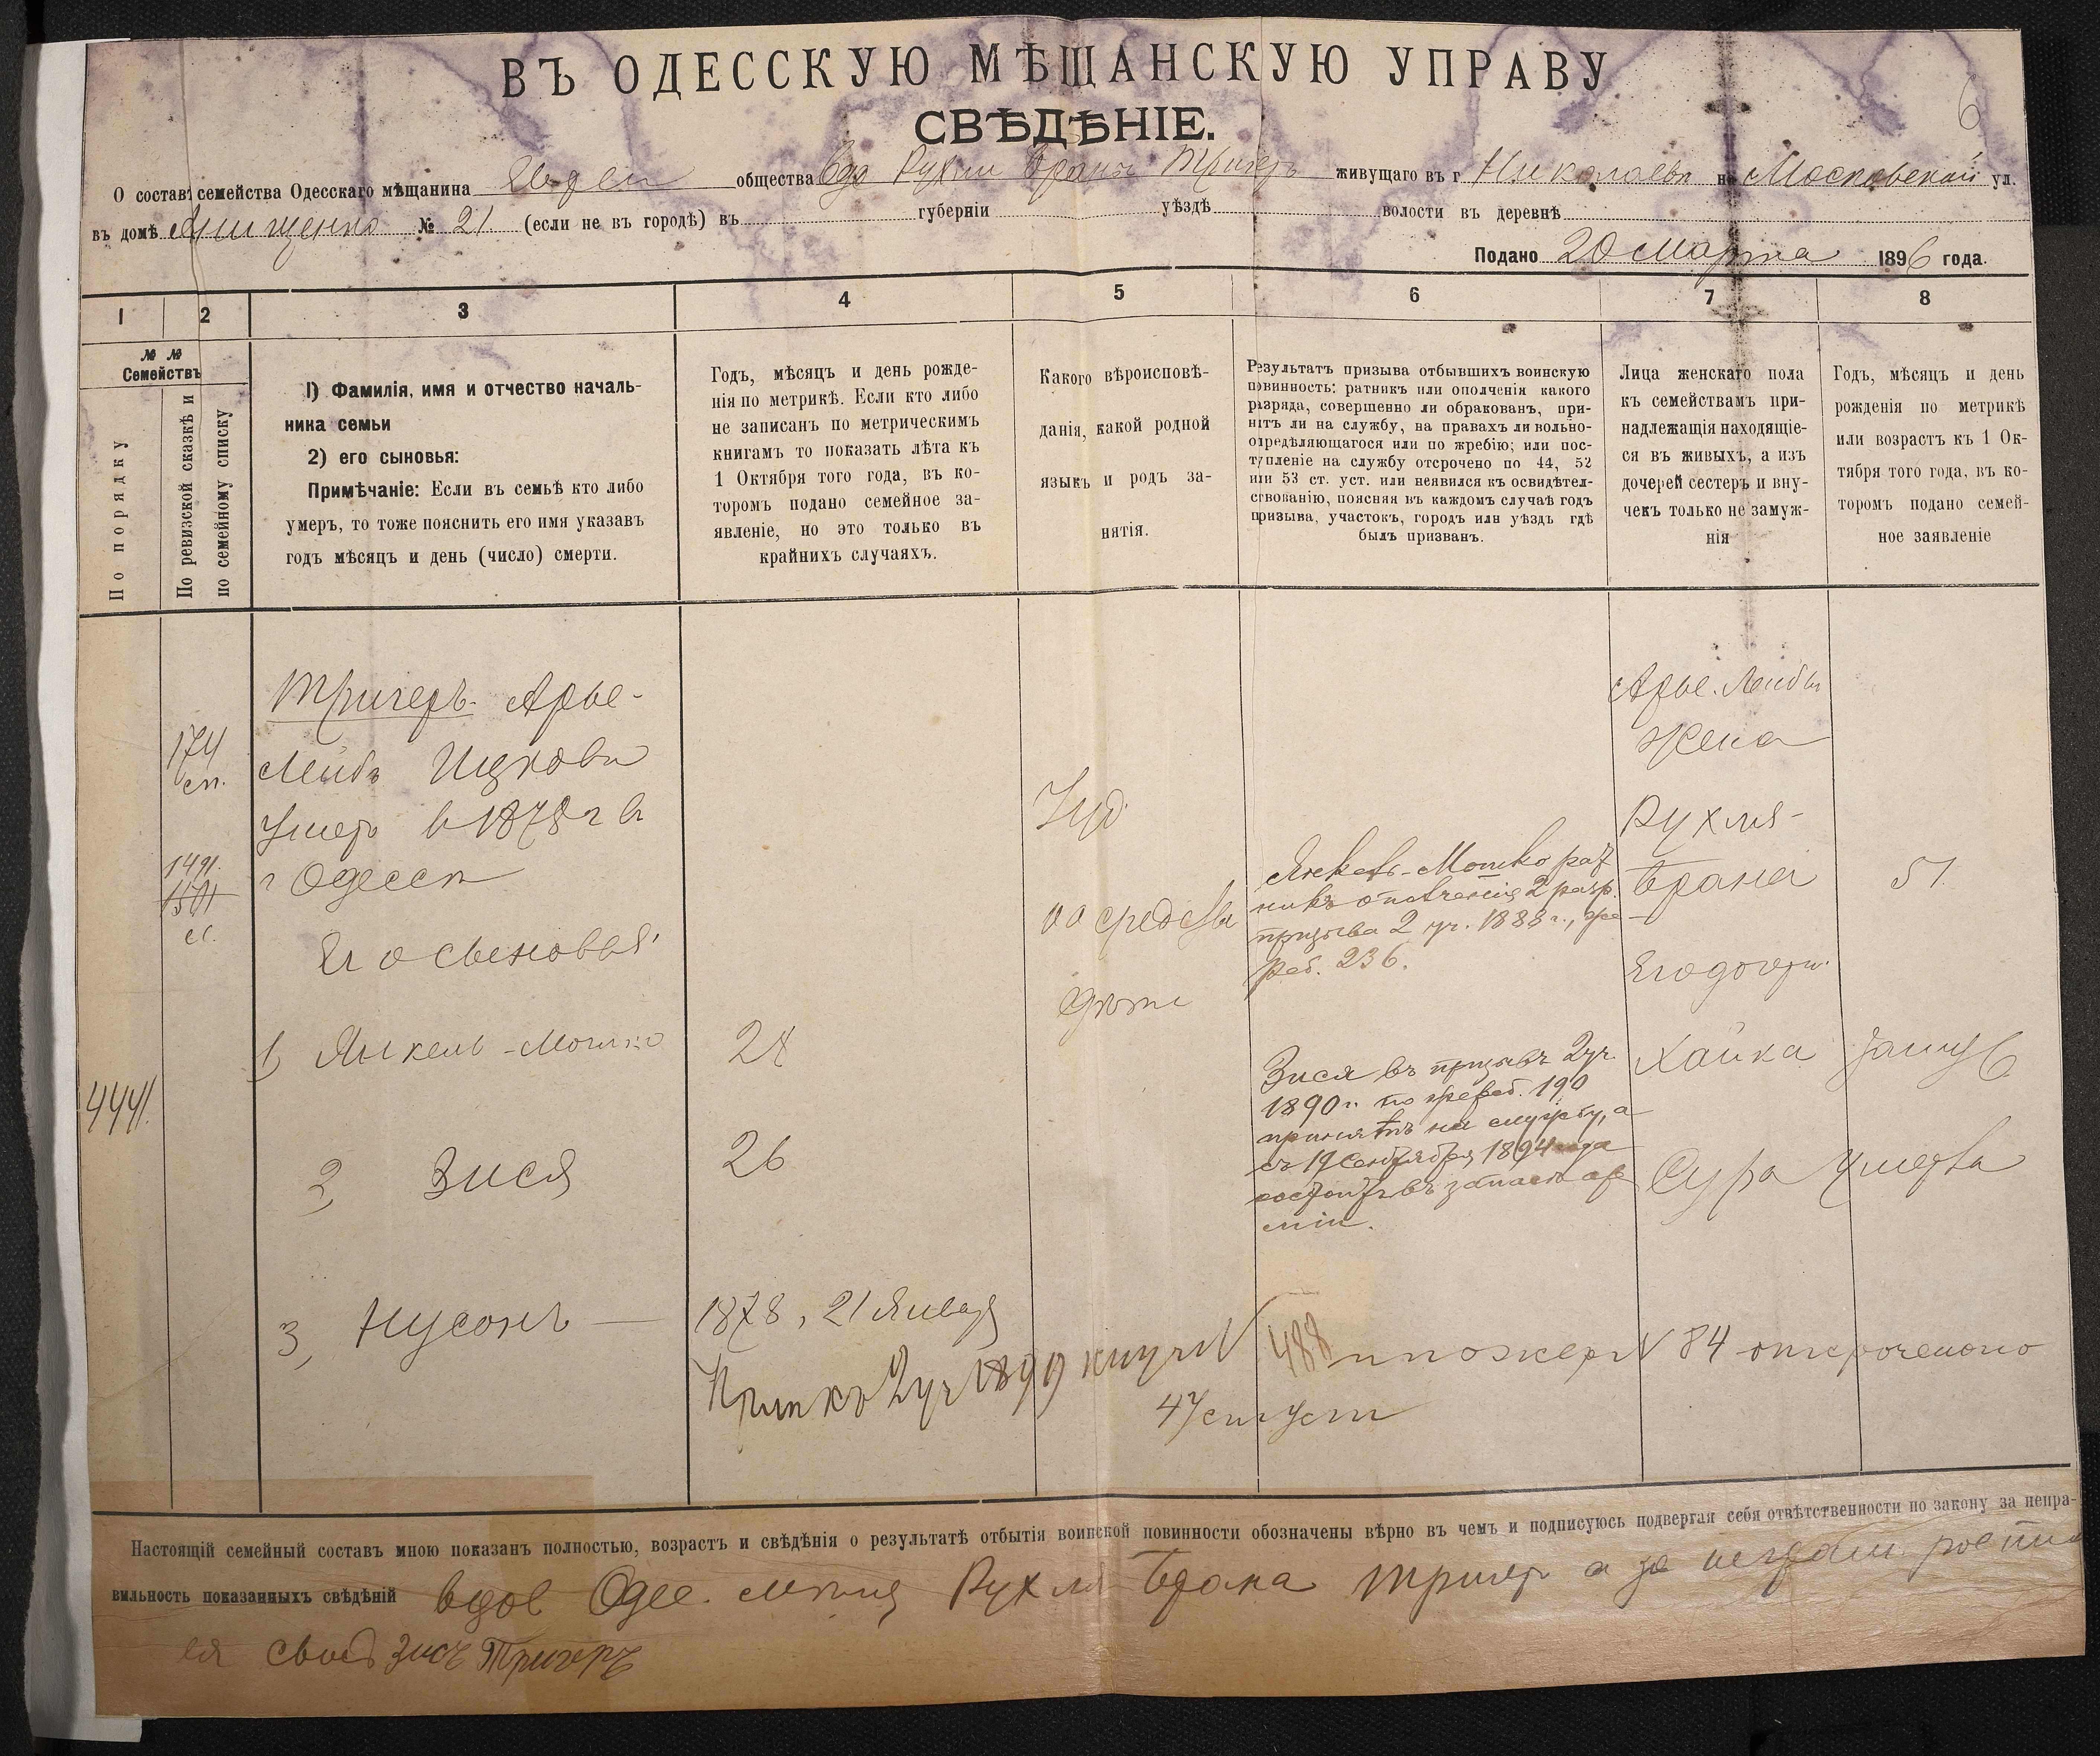 6
ВЪ ОДЕССКУЮ МѢЩАНСКУЮ УПРАВУ
СВѢДѢНІЕ.
О составѣ семейства Одесскаго мѣщанина общества вдо Рухли Браны Тригеръ живущаго въ г Николаевѣ на Московской ул.
въ домѣ Анищенко № 21 (если не въ городѣ) въ губерніи уѣздѣ волости въ деревнѣ
Подано 20 Марта 1896 года.
1 2 3 4 5 6 7 8
№ № Семействъ
По порядку
По ревизской сказкѣ и
по семейному списку
1) Фамилія, имя и отчество началь-
ника семьи
2) его сыновья:
Примѣчаніе: Если въ семьѣ кто либо
умеръ, то тоже пояснить его имя указавъ
годъ мѣсяцъ и день (число) смерти.
Годъ, мѣсяцъ и день рожде-
нія по метрикѣ. Если кто либо
не записанъ по метрическимъ
книгамъ то показать лѣта къ
1 Октября того года, въ ко-
торомъ подано семейное за-
явленіе, но это только въ
крайнихъ случаяхъ.
Какого вѣроисповѣ-
данія, какой родной
языкъ и родъ за-
нятія.
Результатъ призыва отбывшихъ воинскую
повинность: ратникъ или ополченія какого
разряда, совершенно ли обракованъ, при-
нятъ ли на службу, на правахъ ли вольно-
опредѣляющагося или по жребію; или пос-
тупленіе на службу отсрочено по 44, 52
или 53 ст. уст. или неявился къ освидѣтел-
ствованію, поясняя въ каждомъ случаѣ годъ
призыва, участокъ, городъ или уѣздъ гдѣ
былъ призванъ.
Лица женскаго пола
къ семействамъ при-
надлежащія находящіе-
ся въ живыхъ, а изъ
дочерей сестеръ и вну-
чекъ только не замуж-
нія
Годъ, мѣсяцъ и день
рожденія по метрикѣ
или возрастъ къ 1 Ок-
тября того года, въ ко-
торомъ подано семей-
ное заявленіе
4441.
174
сп.
1491.
Тригеръ Арье-
Лейбъ Ицкови
Умеръ в 1878 г в
г Одессѣ
Его сыновья
1, Янкель-Мошко 28
2, Зися 26
3, Нусонъ — 1878, 21 Января
Іуд
Янкель-Мошко рат
никъ ополченія 2 разр.
призыва 2 уч. 1888 г., же
реб. 236.
Зися въ призывъ 2 уч.
1890 г. по жереб. 190
принятъ на службу, а
съ 19 Сентября 1894 года
состоитъ въ запасѣ ар
міи.
Арье-Лейбы
жена
Рухля-
Брана 51
Его дочери
Хайка замуж
Сура умерла
488
по жер N 84 отсрочено
Настоящій семейный составъ мною показанъ полностью, возрастъ и свѣдѣнія о результатѣ отбытія воинской повинности обозначены вѣрно въ чемъ и подписуюсь подвергая себя отвѣтственности по закону за непра-
вильность показанныхъ свѣдѣній вдов Одес. Рухля Брана Тригер а за
ея Зись Тригеръ